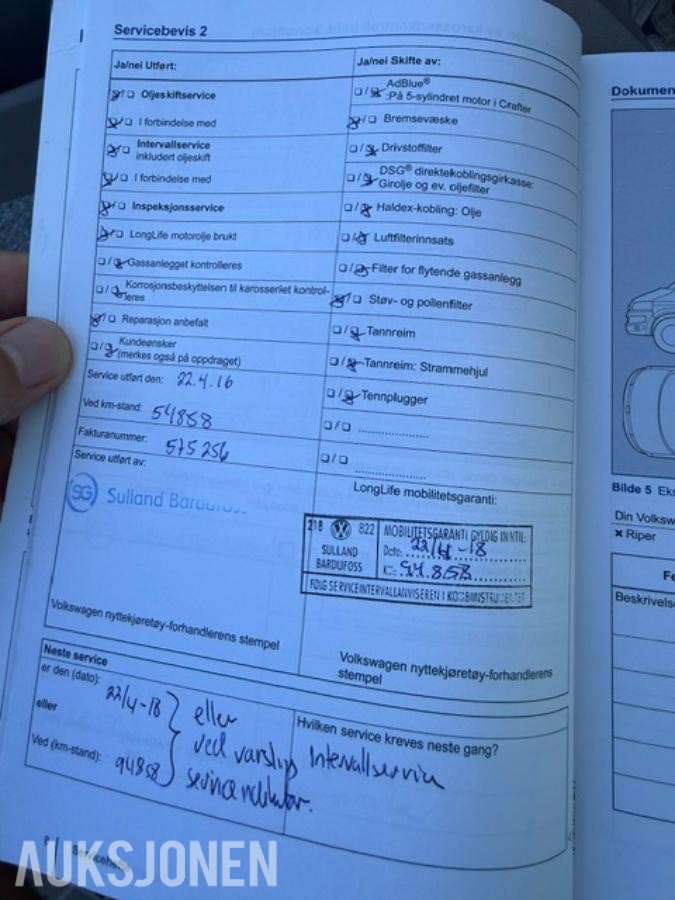 Servicebevis 2
Ja/nei Utført:
Oljeskiftservice
I forbindelse med
Intervallservice
inkludert oljeskift
I forbindelse med
Inspeksjonsservice
LongLife motorolje brukt
Gassanlegget kontrolleres
Korrosjonsbeskyttelsen til karosseriet kontrol-
leres
Reparasjon anbefalt
Kundeønsker
(merkes også på oppdraget)
Service utført den: 22.4.16
Ved km-stand: 54858
Fakturanummer: 575256
Service utført av:
SG Sulland Bardufoss
Volkswagen nyttekjøretøy-forhandlerens stempel
Ja/nei Skifte av:
AdBlue®
:På 5-sylindret motor i Crafter
Bremsevæske
Drivstoffilter
DSG® direktekoblingsgirkasse:
Girolje og ev. oljefilter
Haldex-kobling: Olje
Luftfilterinnsats
Filter for flytende gassanlegg
Støv- og pollenfilter
Tannreim
Tannreim: Strammehjul
Tennplugger
LongLife mobilitetsgaranti:
218 822
SULLAND
BARDUFOSS
MOBILITETSGARANTI GYLDIG INNTIL:
Dato: 22/4-18
Km: 94.858
FØLG SERVICEINTERVALLANVISEREN I KOMBIINSTRUMENTET
Volkswagen nyttekjøretøy-forhandlerens
stempel
Neste service
er den (dato): 22/4-18
eller
Ved (km-stand): 94858
eller
ved varsling
serviceindikator.
Hvilken service kreves neste gang?
Intervallservice
8 Servicehefte
Dokumen
Bilde 5 Eks
Din Volksw
× Riper
Fe
Beskrivelse
AUKSJONEN